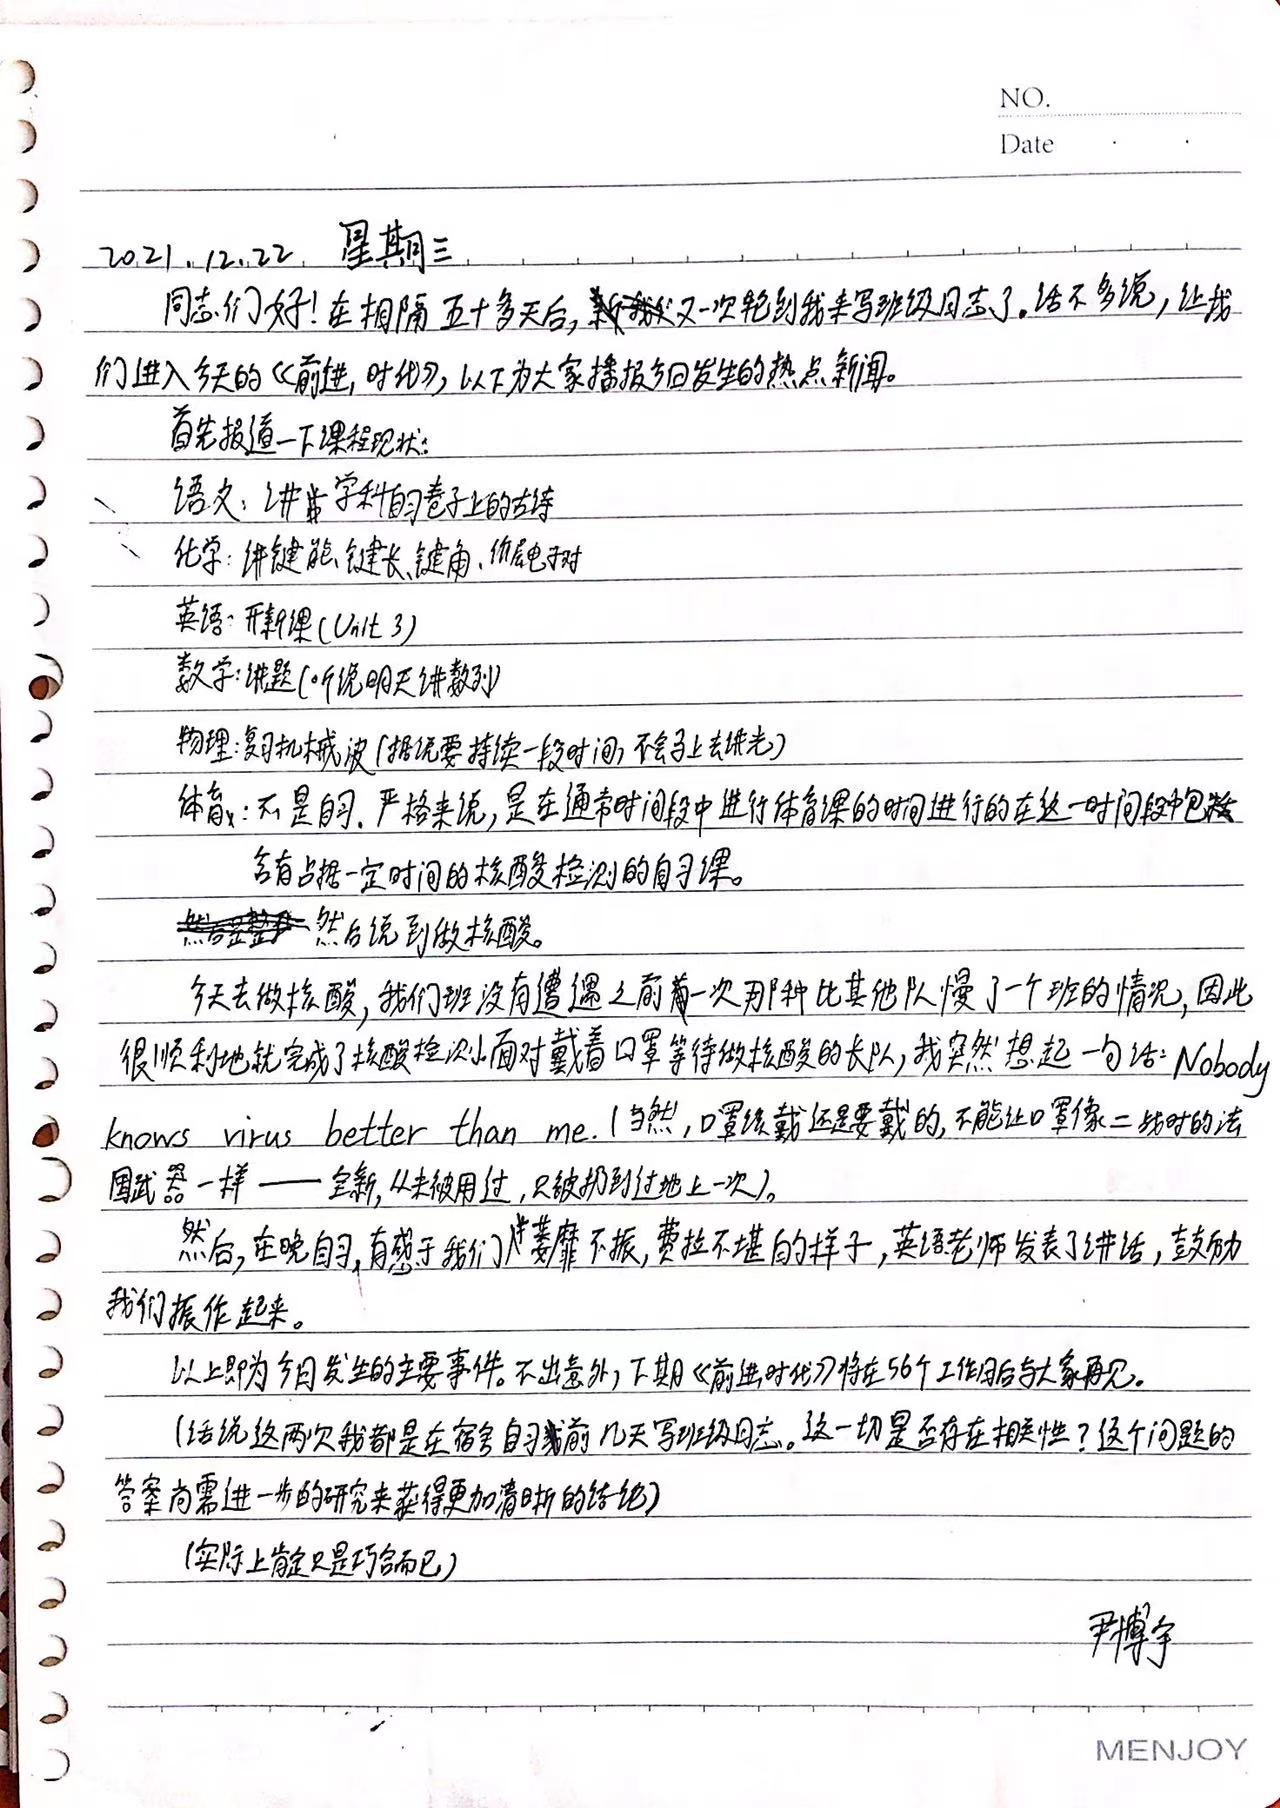 NO.
Date
2021.12.22 星期三
同志们好！在相隔五十多天后，又一次轮到我来写班级日志了。话不多说，让我
们进入今天的《前进,时代》，以下为大家播报今日发生的热点新闻。
首先报道一下课程现状：
语文：讲学科自习卷子上的古诗
化学：讲键能、键长、键角、价层电子对
英语：开新课(Unit 3)
数学：讲题(听说明天讲数列)
物理：复习机械波(据说要持续一段时间，不会马上去讲光)
体育：不是自习．严格来说，是在通常时间段中进行体育课的时间进行的在这一时间段中包
含有占据一定时间的核酸检测的自习课。
然后说到做核酸。
今天去做核酸，我们班没有遭遇之前一次那种比其他队慢了一个班的情况，因此
很顺利地就完成了核酸检测。面对戴着口罩等待做核酸的长队，我突然想起一句话：Nobody
knows virus better than me.(当然，口罩该戴还是要戴的，不能让口罩像二战时的法
国武器一样——全新，从未被用过，只被扔到过地上一次)。
然后，在晚自习，有感于我们萎靡不振，费拉不堪的样子，英语老师发表了讲话，鼓励
我们振作起来。
以上即为今日发生的主要事件。不出意外，下期《前进,时代》将在56个工作日后与大家再见。
(话说这两次我都是在宿舍自习前几天写班级日志。这一切是否存在相关性？这个问题的
答案尚需进一步的研究来获得更加清晰的结论)
(实际上肯定只是巧合而已)
尹博宇
MENJOY